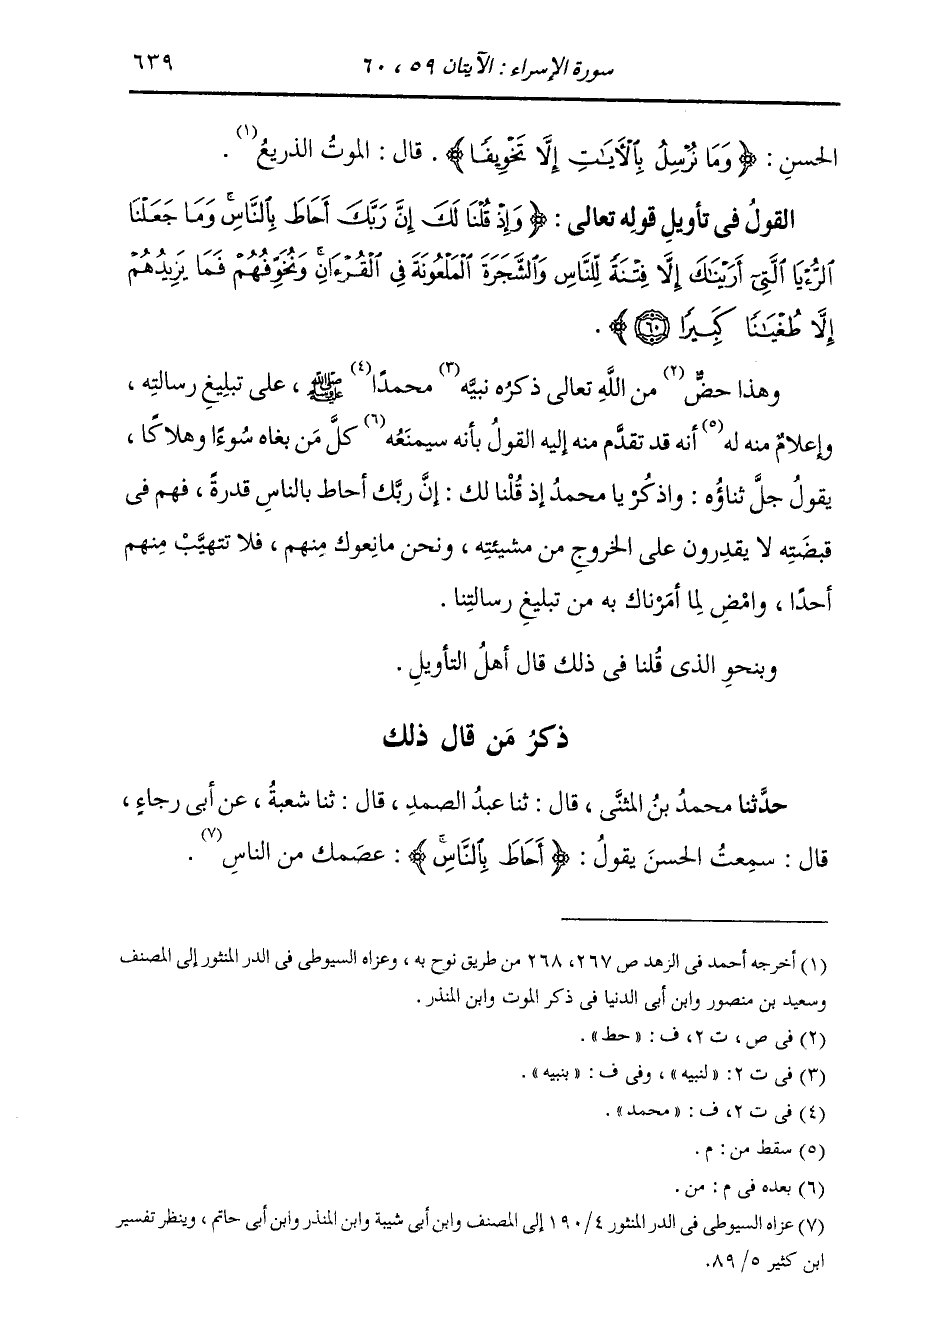 سورة الإسراء : الآيتان ٥٩ ، ٦٠ ٦٣٩
الحسنِ : ﴿ وَمَا نُرْسِلُ بِٱلْأَيَٰتِ إِلَّا تَخْوِيفًا ﴾ . قال : الموتُ الذريعُ(١) .
القولُ فى تأويلِ قولِه تعالى : ﴿ وَإِذْ قُلْنَا لَكَ إِنَّ رَبَّكَ أَحَاطَ بِٱلنَّاسِۚ وَمَا جَعَلْنَا
ٱلرُّءْيَا ٱلَّتِىٓ أَرَيْنَٰكَ إِلَّا فِتْنَةً لِّلنَّاسِ وَٱلشَّجَرَةَ ٱلْمَلْعُونَةَ فِى ٱلْقُرْءَانِۚ وَنُخَوِّفُهُمْ فَمَا يَزِيدُهُمْ
إِلَّا طُغْيَٰنًا كَبِيرًا ٦٠ ﴾ .
وهذا حضٌّ(٢) من اللَّهِ تعالى ذكرُه نبيَّه(٣) محمدًا(٤) ﷺ ، على تبليغِ رسالتِه ،
وإعلامٌ منه له(٥) أنه قد تقدَّم منه إليه القولُ بأنه سيمنَعُه(٦) كلَّ مَن بغاه سُوءًا وهلاكًا ،
يقولُ جلَّ ثناؤُه : واذكُرْ يا محمدُ إذ قُلْنا لك : إنَّ ربَّك أحاط بالناسِ قدرةً ، فهم فى
قبضَتِه لا يقدِرون على الخروجِ من مشيئتِه ، ونحن مانِعوك مِنهم ، فلا تتهيَّبْ مِنهم
أحدًا ، وامْضِ لِما أمَرْناك به من تبليغِ رسالتِنا .
وبنحوِ الذى قُلنا فى ذلك قال أهلُ التأويلِ .
ذكرُ مَن قال ذلك
حدَّثنا محمدُ بنُ المثنَّى ، قال : ثنا عبدُ الصمدِ ، قال : ثنا شعبةُ ، عن أبى رجاءٍ ،
قال : سمِعتُ الحسنَ يقولُ : ﴿ أَحَاطَ بِٱلنَّاسِۚ ﴾ : عصَمك من الناسِ(٧) .
(١) أخرجه أحمد فى الزهد ص ٢٦٧، ٢٦٨ من طريق نوح به ، وعزاه السيوطى فى الدر المنثور إلى المصنف
وسعيد بن منصور وابن أبى الدنيا فى ذكر الموت وابن المنذر .
(٢) فى ص ، ت ٢، ف : « حط » .
(٣) فى ت ٢: « لنبيه » ، وفى ف : « بنبيه » .
(٤) فى ت ٢، ف : « محمد » .
(٥) سقط من : م .
(٦) بعده فى م : من .
(٧) عزاه السيوطى فى الدر المنثور ٤/ ١٩٠ إلى المصنف وابن أبى شيبة وابن المنذر وابن أبى حاتم ، وينظر تفسير
ابن كثير ٥/ ٨٩.